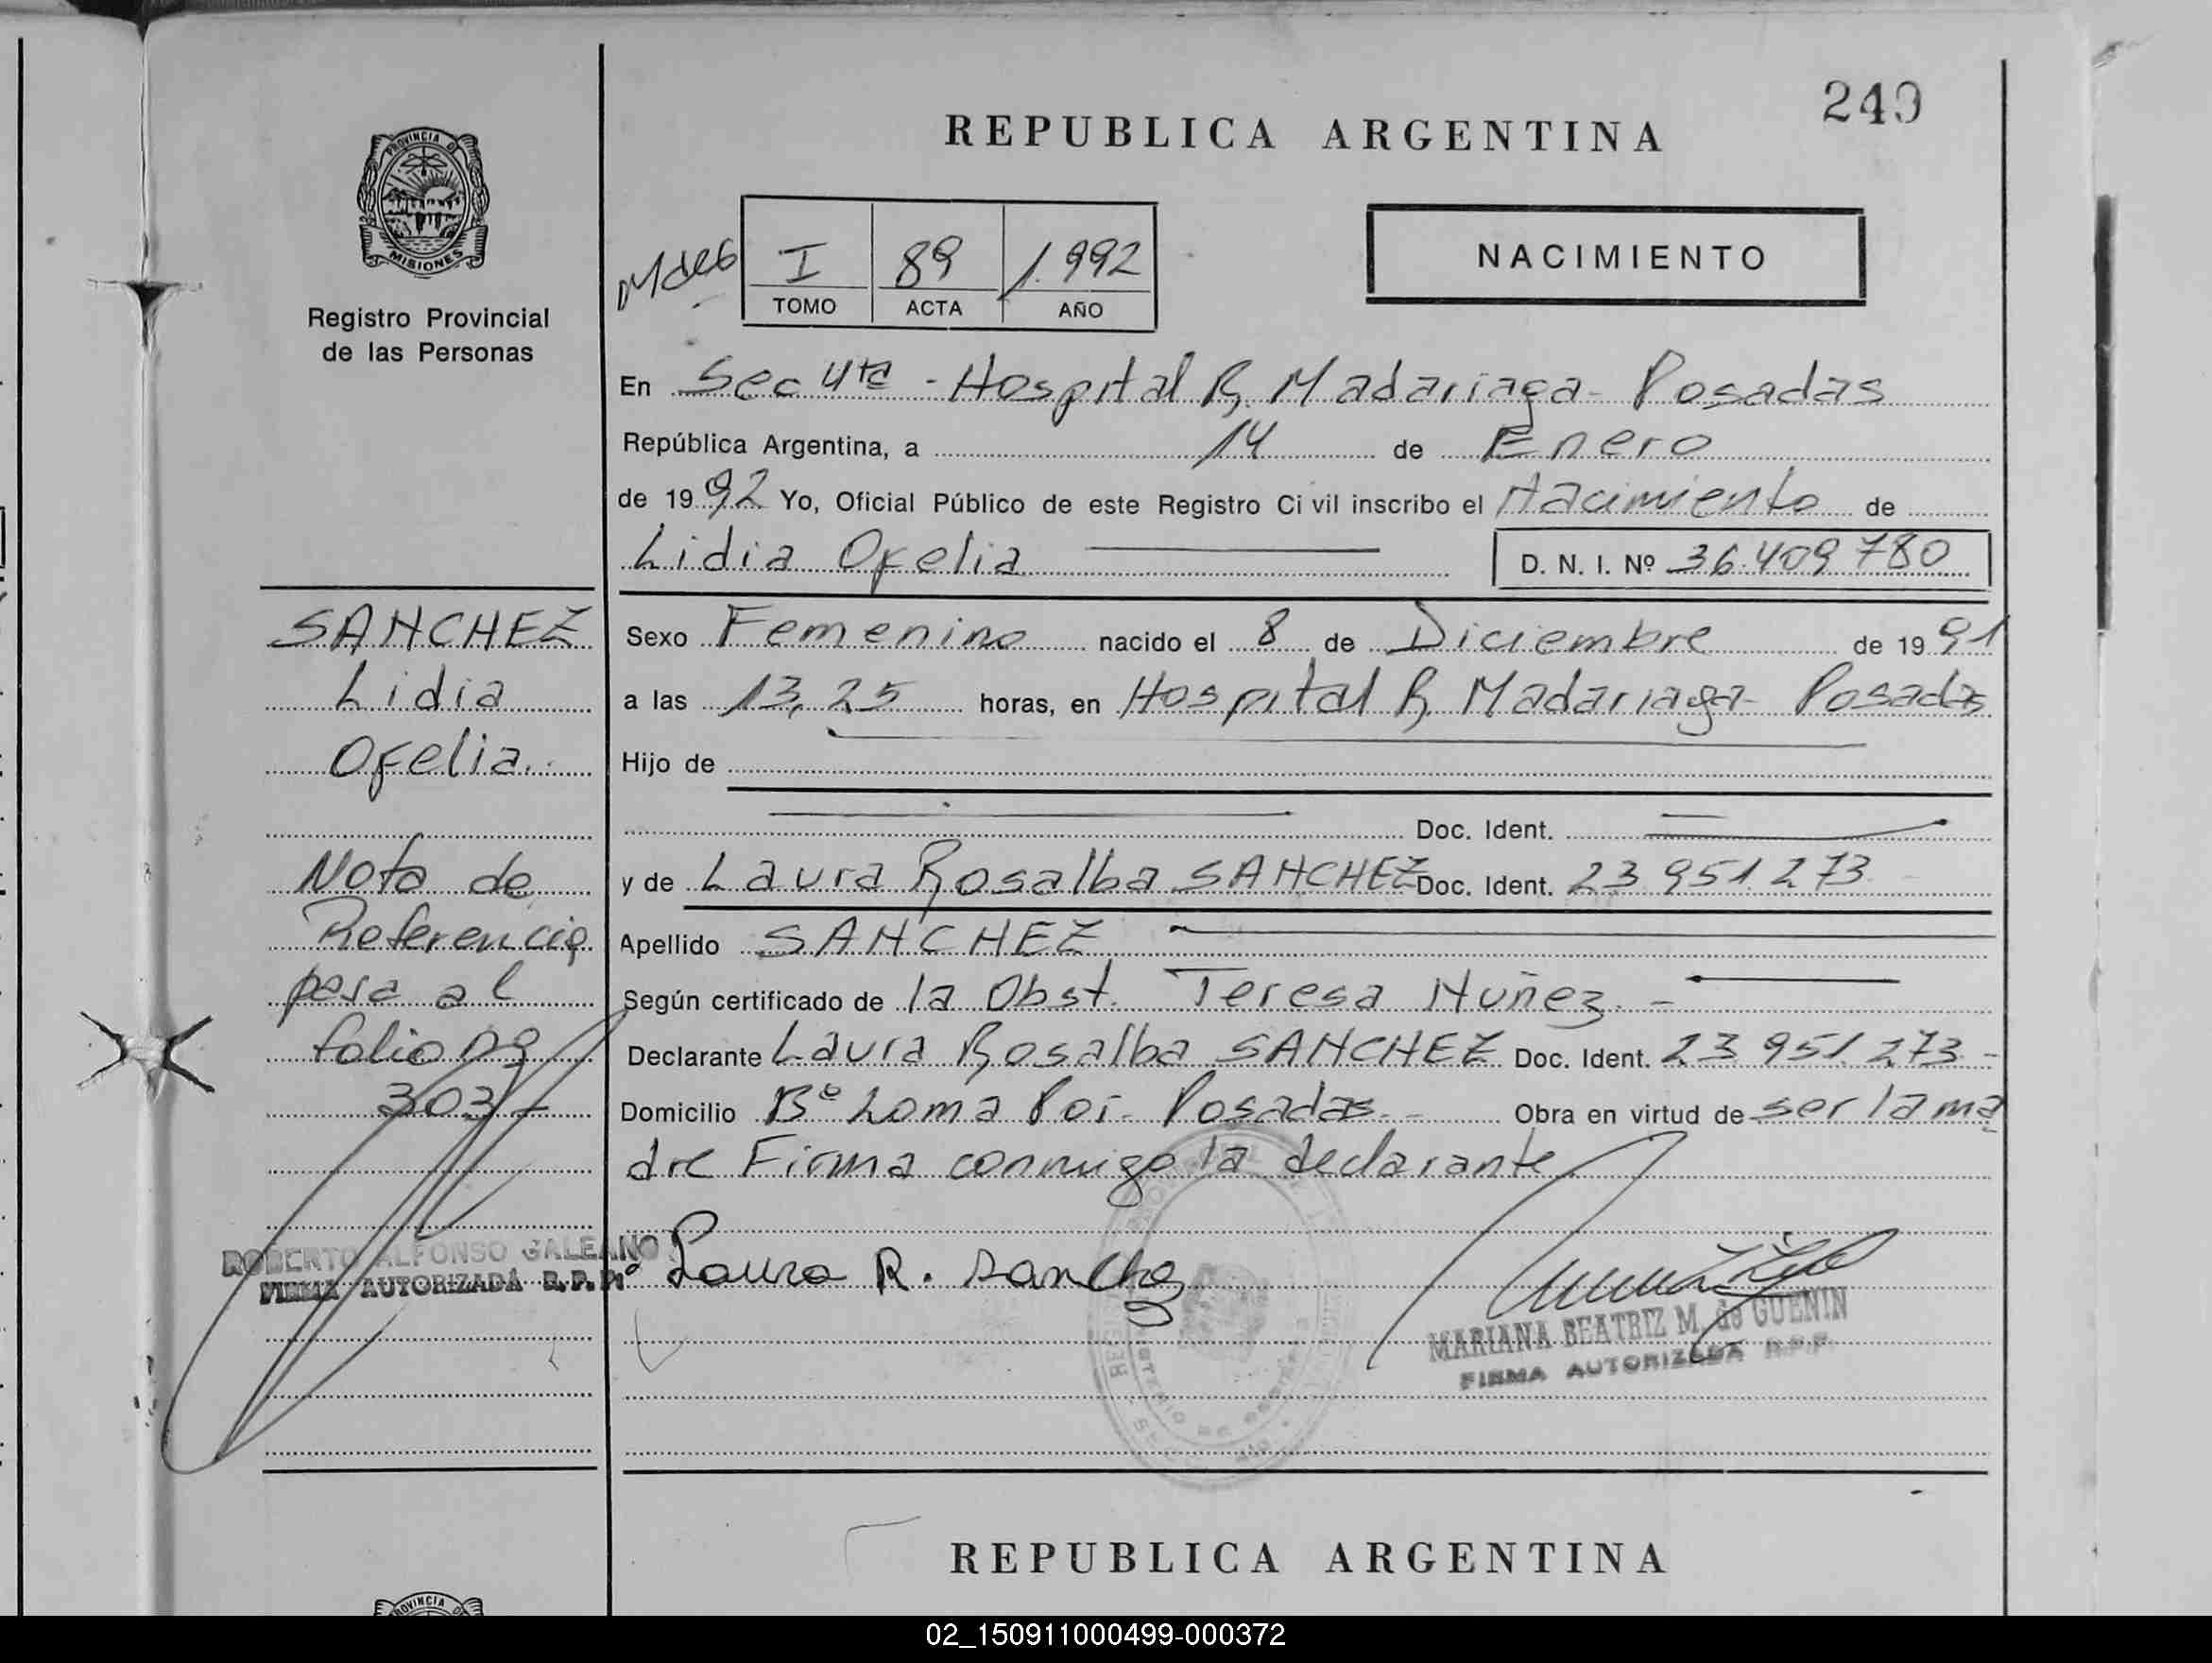 249
REPUBLICA ARGENTINA
PROVINCIA DE
MISIONES
Registro Provincial
de las Personas
I 89 1.992
TOMO ACTA AÑO
NACIMIENTO
En Sec 4ta - Hospital R. Madariaga - Posadas
República Argentina, a 14 de Enero
de 1992 Yo, Oficial Público de este Registro Civil inscribo el Nacimiento de
Lidia Ofelia D. N. I. Nº 36.409 780
Sexo Femenino nacido el 8 de Diciembre de 1991
a las 13,25 horas, en Hospital R. Madariaga - Posadas
Hijo de
Doc. Ident.
y de Laura Rosalba SANCHEZ Doc. Ident. 23 951 273
Apellido SANCHEZ
Según certificado de la Obst. Teresa Nuñez. -
Declarante Laura Rosalba SANCHEZ Doc. Ident. 23 951 273 -
Domicilio Bº Loma Poi - Posadas. - Obra en virtud de ser la ma
dre Firma conmigo la declarante
Laura R. Sanchez
MARIANA BEATRIZ M. de GUENIN
FIRMA AUTORIZADA R.P.P.
SANCHEZ
Lidia
Ofelia.
Nota de
Referencia
pasa al
folio nº
303 -
ROBERTO ALFONSO GALEANO
FIRMA AUTORIZADA R.P.P.
REPUBLICA ARGENTINA
PROVINCIA D
02_150911000499-000372